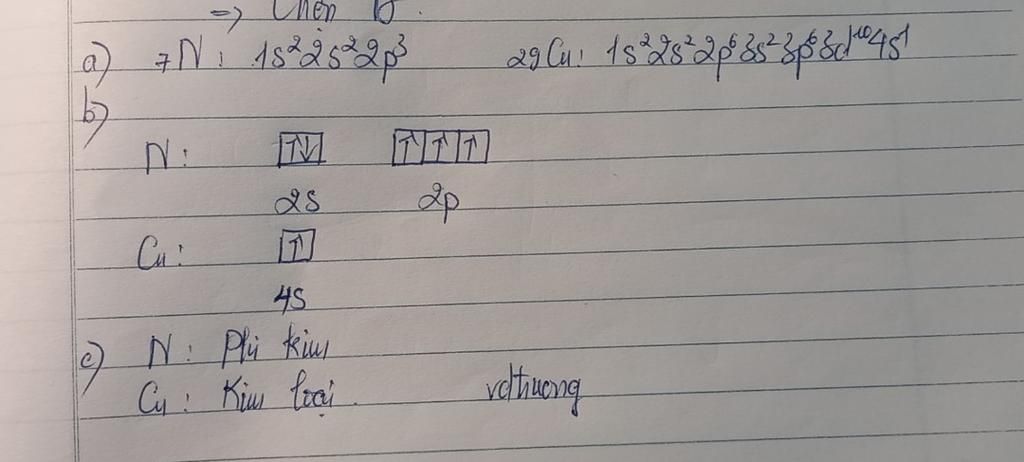 => Chọn D.
a) ₇N: 1s²2s²2p³ ₂₉Cu: 1s²2s²2p⁶3s²3p⁶3d¹⁰4s¹
b)
N: ↑↓ ↑ ↑ ↑
2s 2p
Cu: ↑
4s
c) N: Phi kim
Cu: Kim loại. vdthuong